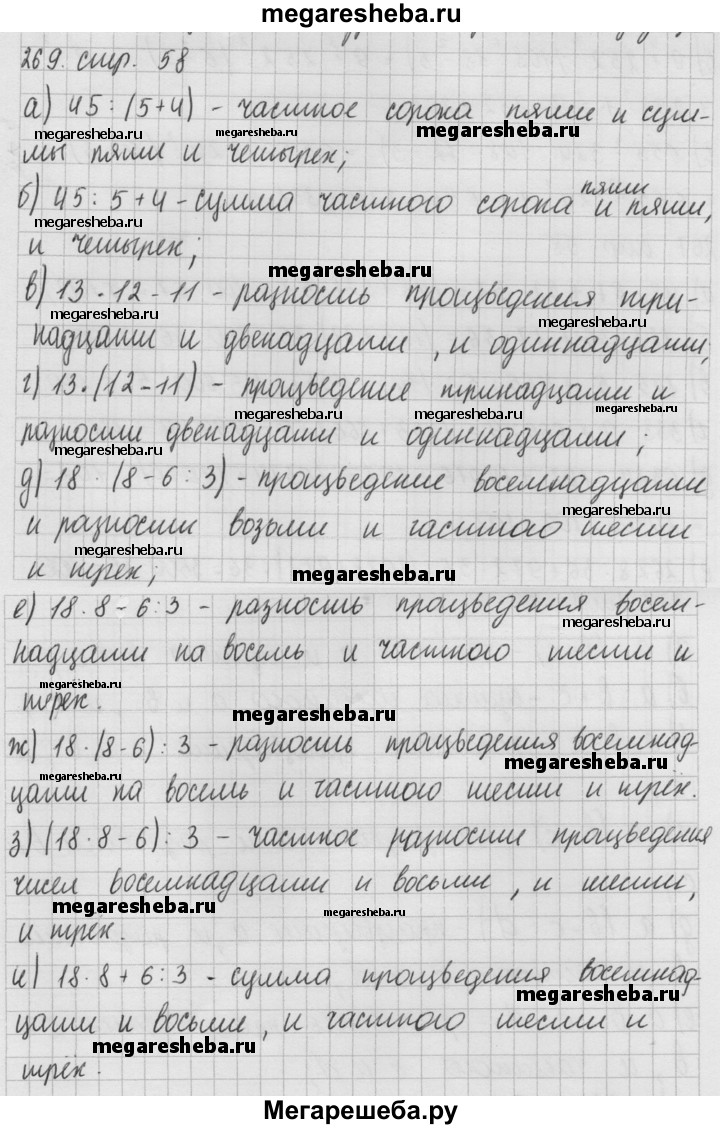 megaresheba.ru
269. стр. 58
а) 45 : (5+4) - частное сорока пяти и сум-
megaresheba.ru megaresheba.ru megaresheba.ru
мы пяти и четырех;
б) 45 : 5 + 4 - сумма частного сорока пяти и пяти,
megaresheba.ru
и четырех;
megaresheba.ru
в) 13 · 12 - 11 - разность произведения три-
megaresheba.ru megaresheba.ru
надцати и двенадцати, и одиннадцати,
megaresheba.ru
г) 13 · (12 - 11) - произведение тринадцати и
megaresheba.ru megaresheba.ru megaresheba.ru
разности двенадцати и одиннадцати;
megaresheba.ru
д) 18 · (8 - 6 : 3) - произведение восемнадцати
megaresheba.ru
и разности возьми и частного шести
megaresheba.ru
и трех;
megaresheba.ru
е) 18 · 8 - 6 : 3 - разность произведения восем-
megaresheba.ru
надцати на восемь и частного шести и
megaresheba.ru
трёх.
megaresheba.ru
ж) 18 · (8-6) : 3 - разность произведения восемнад-
megaresheba.ru
megaresheba.ru
цати на восемь и частного шести и трёх.
з) (18 · 8 - 6) : 3 - частное разности произведения
чисел восемнадцати и восьми, и шести,
megaresheba.ru megaresheba.ru
и трёх.
и) 18 · 8 + 6 : 3 - сумма произведения восемнад-
megaresheba.ru
цати и восьми, и частного шести и
megaresheba.ru
трёх.
Мегарешеба.ру